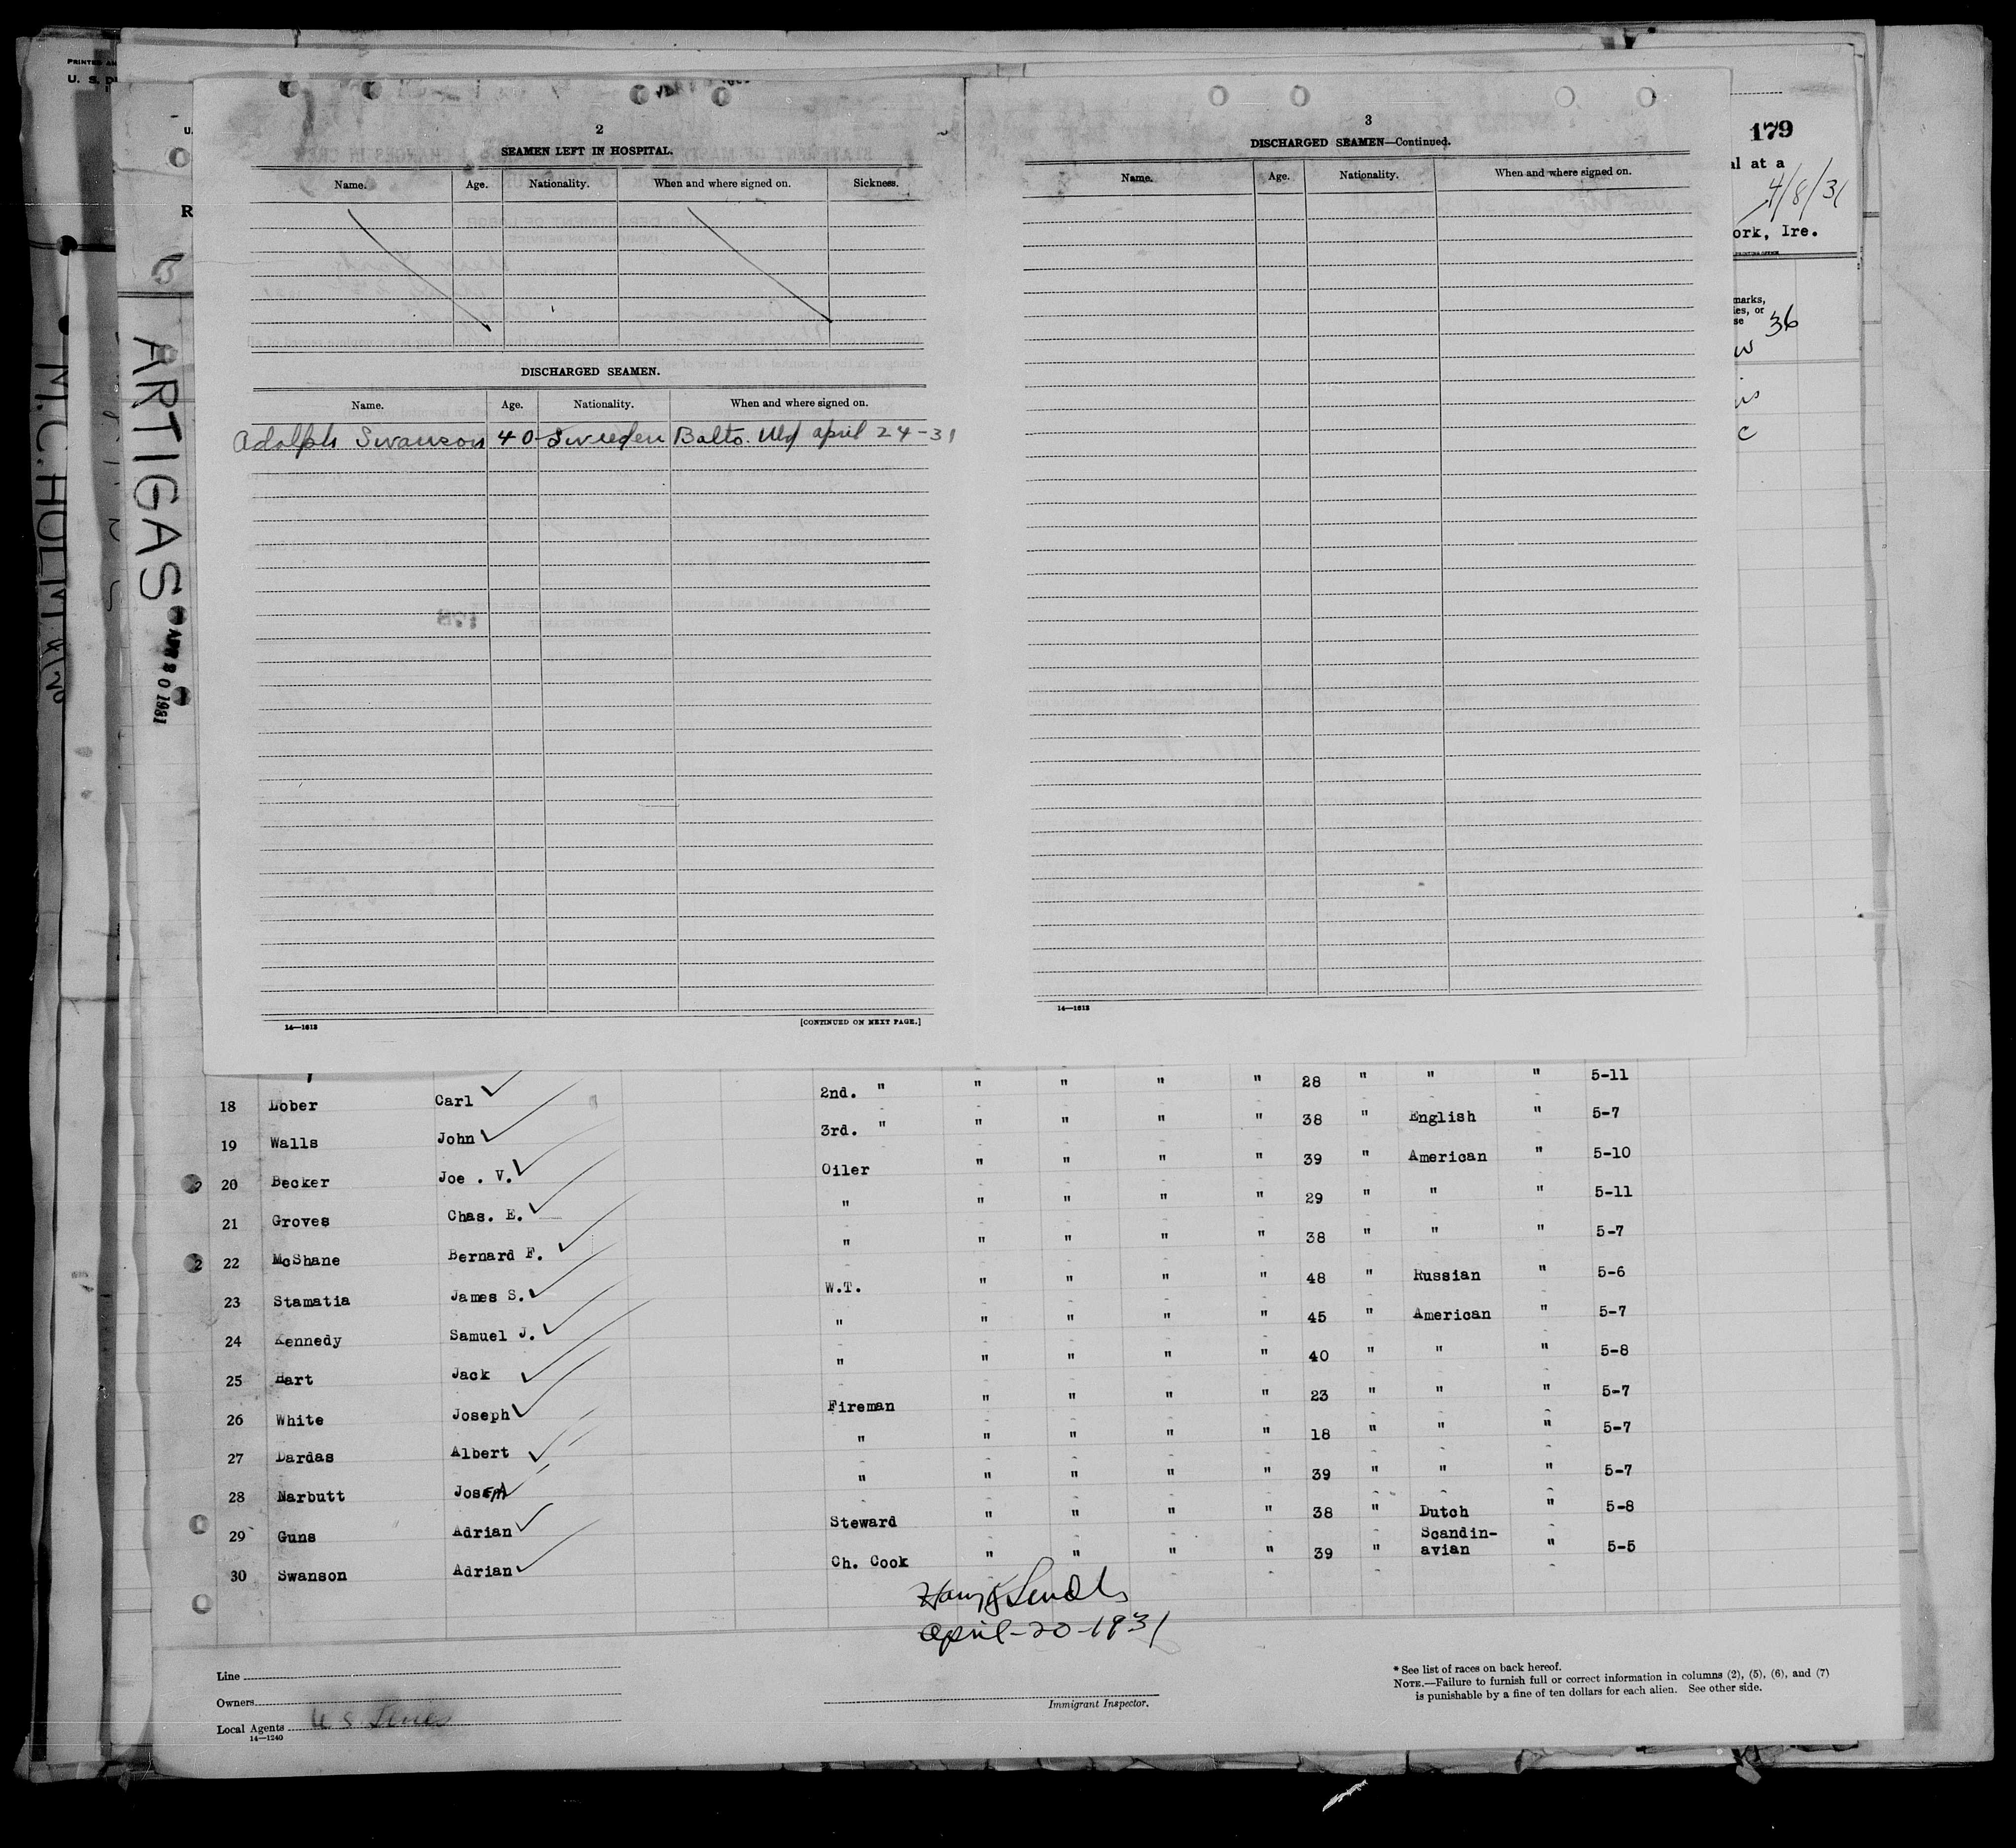 PRINTED
M.C. HOLM
ARTIGAS
APR 20 1931
179
al at a
4/8/31
ork, Ire.
marks,
ies, or
se
36
2
SEAMEN LEFT IN HOSPITAL.
Name. Age. Nationality. When and where signed on. Sickness.
DISCHARGED SEAMEN.
Name. Age. Nationality. When and where signed on.
Adolph Swanson 40 Sweden Balto. Md april 24-31
14—1613
[CONTINUED ON NEXT PAGE.]
3
DISCHARGED SEAMEN—Continued.
Name. Age. Nationality. When and where signed on.
14—1613
18 Lober Carl 2nd. " " " " " 28 " " " 5-11
19 Walls John 3rd. " " " " " 38 " English " 5-7
20 Becker Joe . V. Oiler " " " " 39 " American " 5-10
21 Groves Chas. E. " " " " " 29 " " " 5-11
22 McShane Bernard F. " " " " " 38 " " " 5-7
23 Stamatia James S. W.T. " " " " 48 " Russian " 5-6
24 Kennedy Samuel J. " " " " " 45 " American " 5-7
25 Hart Jack " " " " " 40 " " " 5-8
26 White Joseph Fireman " " " " 23 " " " 5-7
27 Dardas Albert " " " " " 18 " " " 5-7
28 Narbutt Joseph " " " " " 39 " " " 5-7
29 Guns Adrian Steward " " " " 38 " Dutch " 5-8
30 Swanson Adrian Ch. Cook " " " " 39 " Scandin-
avian " 5-5
April-20-1931
Line
Owners
Local Agents U S Lines
14—1240
Immigrant Inspector.
* See list of races on back hereof.
NOTE.—Failure to furnish full or correct information in columns (2), (5), (6), and (7)
is punishable by a fine of ten dollars for each alien. See other side.